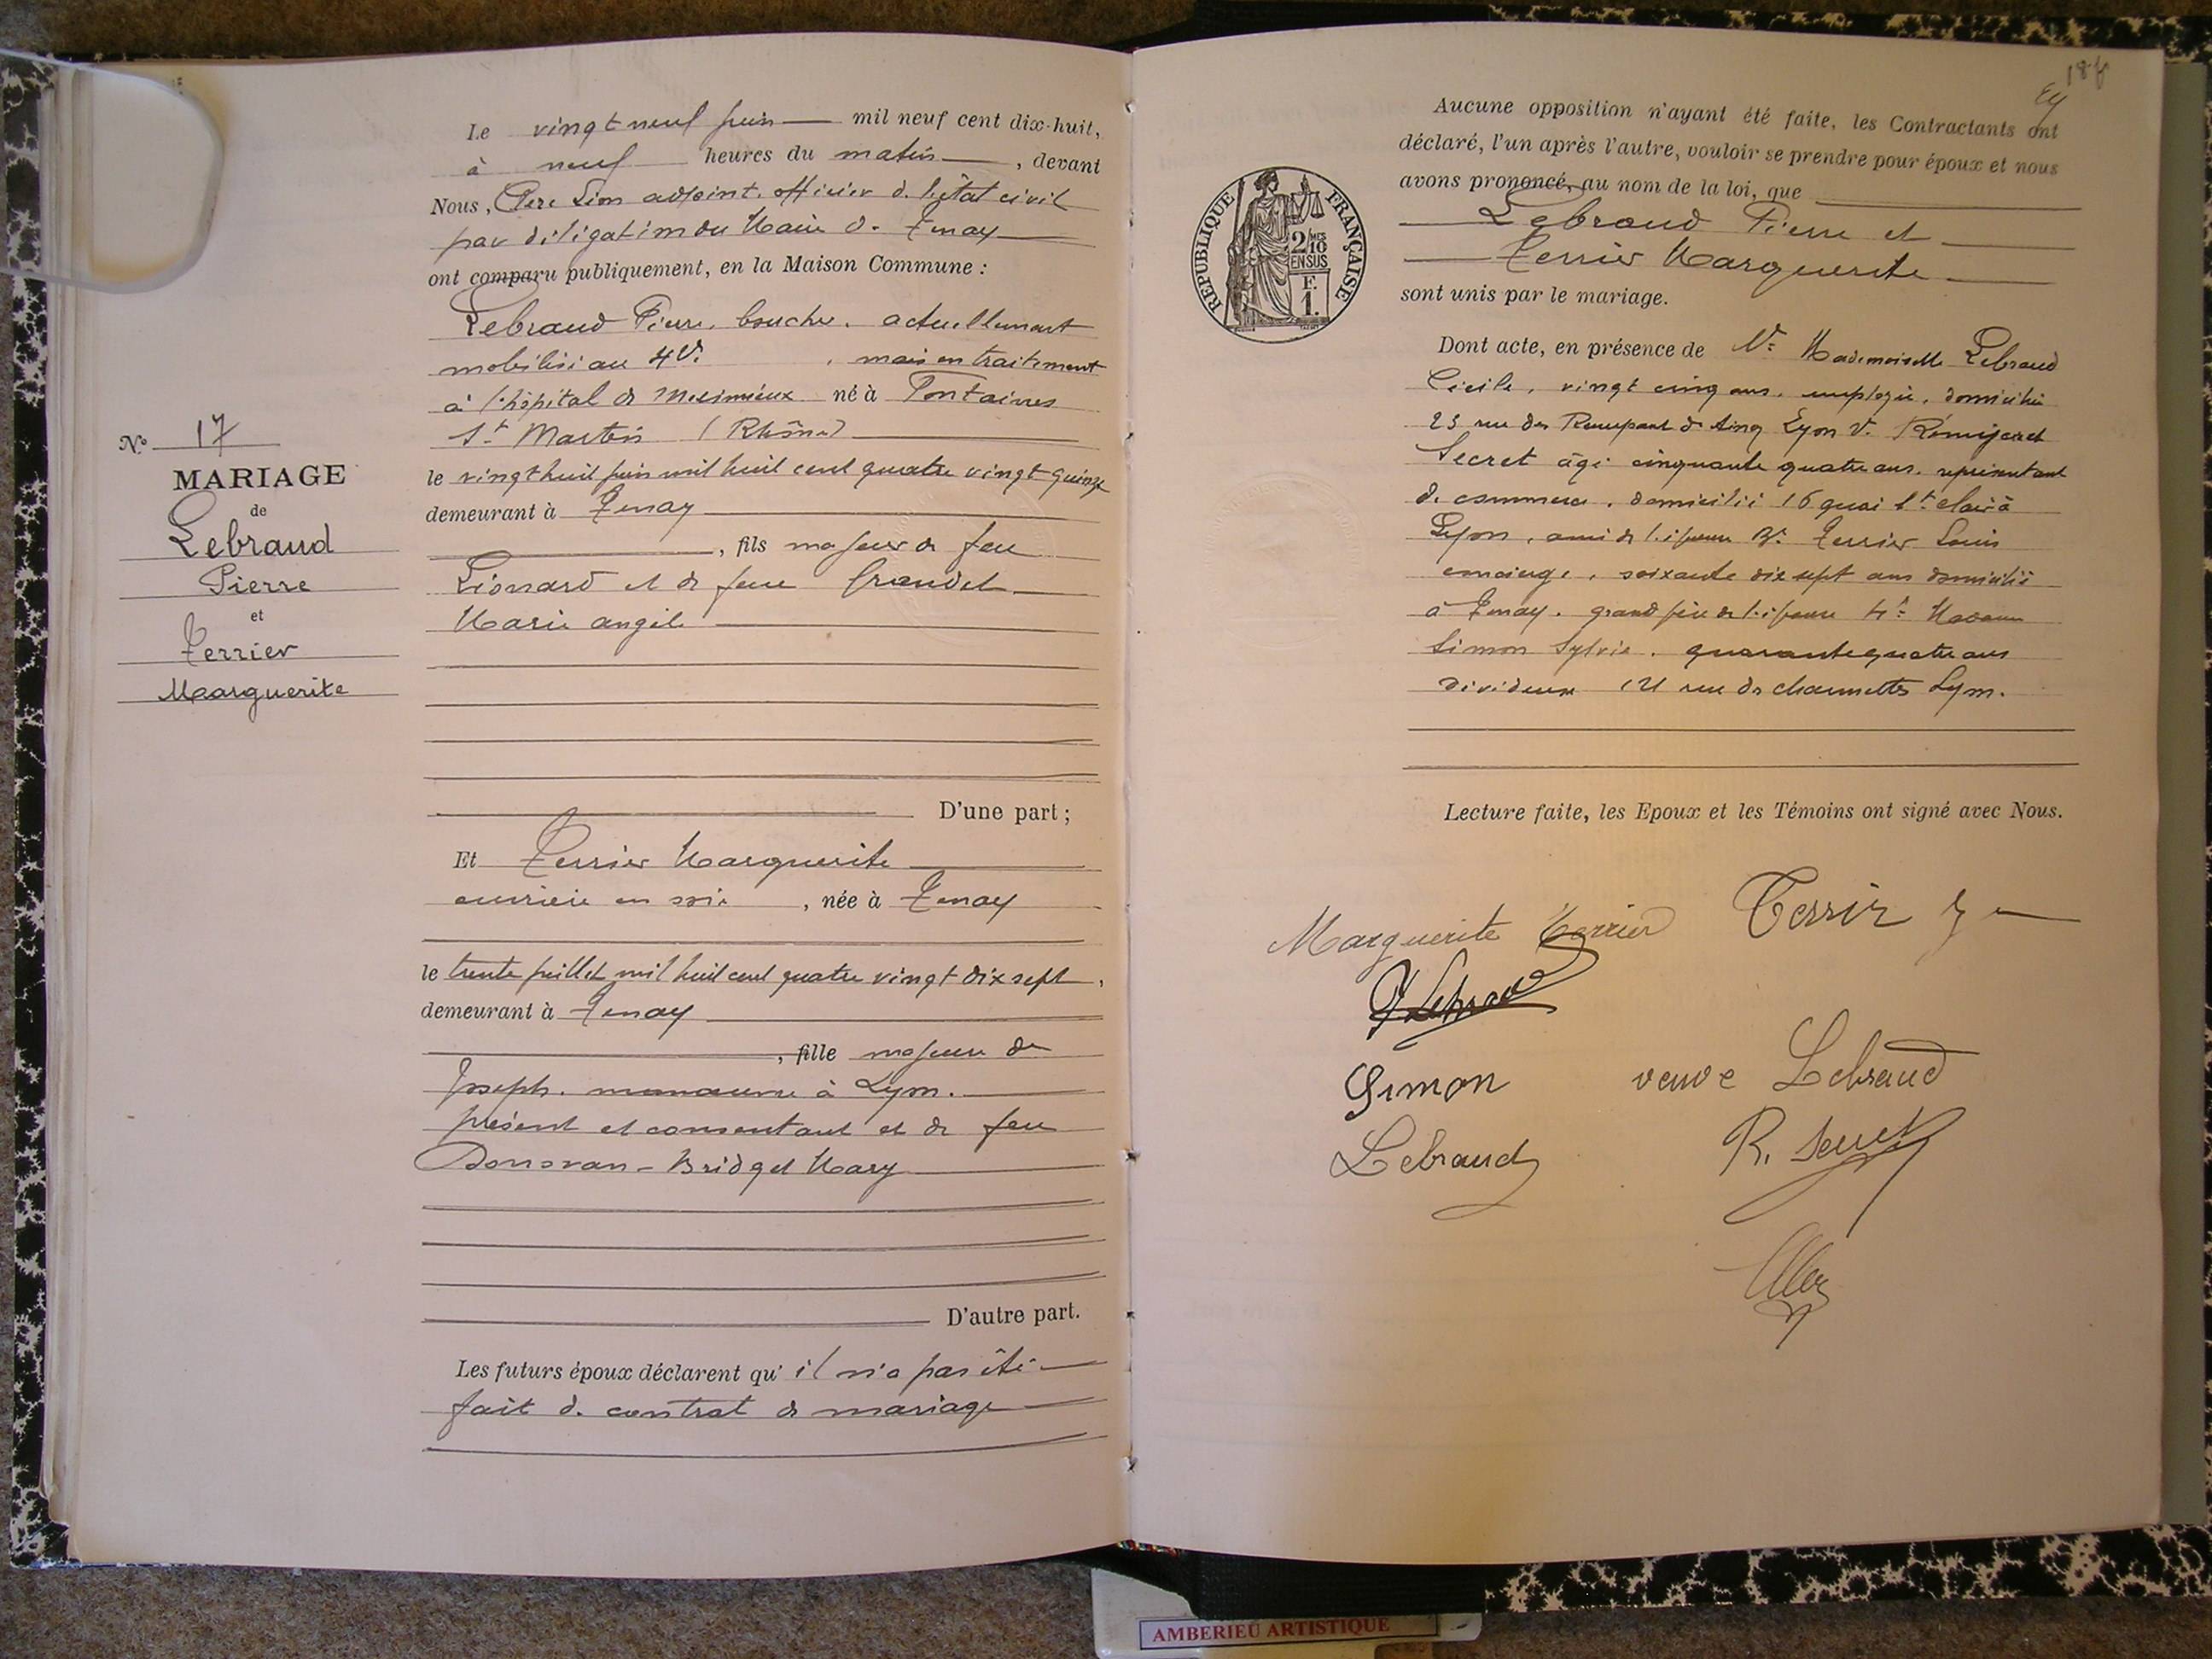 Le vingt neuf juin mil neuf cent dix-huit,
à neuf heures du matin, devant
Nous, Léon adjoint, officier de l'état civil
par délégation du Maire de Tenay
ont comparu publiquement, en la Maison Commune :
Lebraud Pierre, boucher, actuellement
mobilisé au, mais en traitement
à l'hôpital de Meximieux né à Fontaines
St Martin (Rhône)
le vingt huit juin mil huit cent quatre vingt quinze
demeurant à Tenay
, fils majeur de feu
Léonard et de feue
Marie
N° 17
MARIAGE
de
Lebraud
Pierre
et
Terrier
Marguerite
D'une part ;
Et Terrier Marguerite
ouvrière en soie, née à Tenay
le trente juillet mil huit cent quatre vingt dix sept,
demeurant à Tenay
, fille majeure de
Joseph, manœuvre à Lyon.
présent et consentant et de feu
Donovan - Bridget Mary
D'autre part.
Les futurs époux déclarent qu'il n'a pas été
fait de contrat de mariage
Aucune opposition n'ayant été faite, les Contractants ont
déclaré, l'un après l'autre, vouloir se prendre pour époux et nous
avons prononcé, au nom de la loi, que
Lebraud Pierre et
Terrier Marguerite
sont unis par le mariage.
RÉPUBLIQUE FRANÇAISE
2/10
EN SUS
F.
1.
Dont acte, en présence de Mademoiselle Lebraud
Cécile, vingt cinq ans, employée, domiciliée
rue des Lyon
Secret âgé cinquante quatre ans, représentant
de commerce, domicilié 16 quai St Clair à
Lyon, ami de l'époux Terrier Louis
concierge, soixante dix sept ans domicilié
à Tenay, grand père de l'épouse 4° Madame
Simon Sylvie, quarante quatre ans
dévideuse rue des Lyon.
Lecture faite, les Epoux et les Témoins ont signé avec Nous.
Marguerite Terrier
Simon veuve Lebraud
Lebraud R. Secret
AMBERIEU ARTISTIQUE